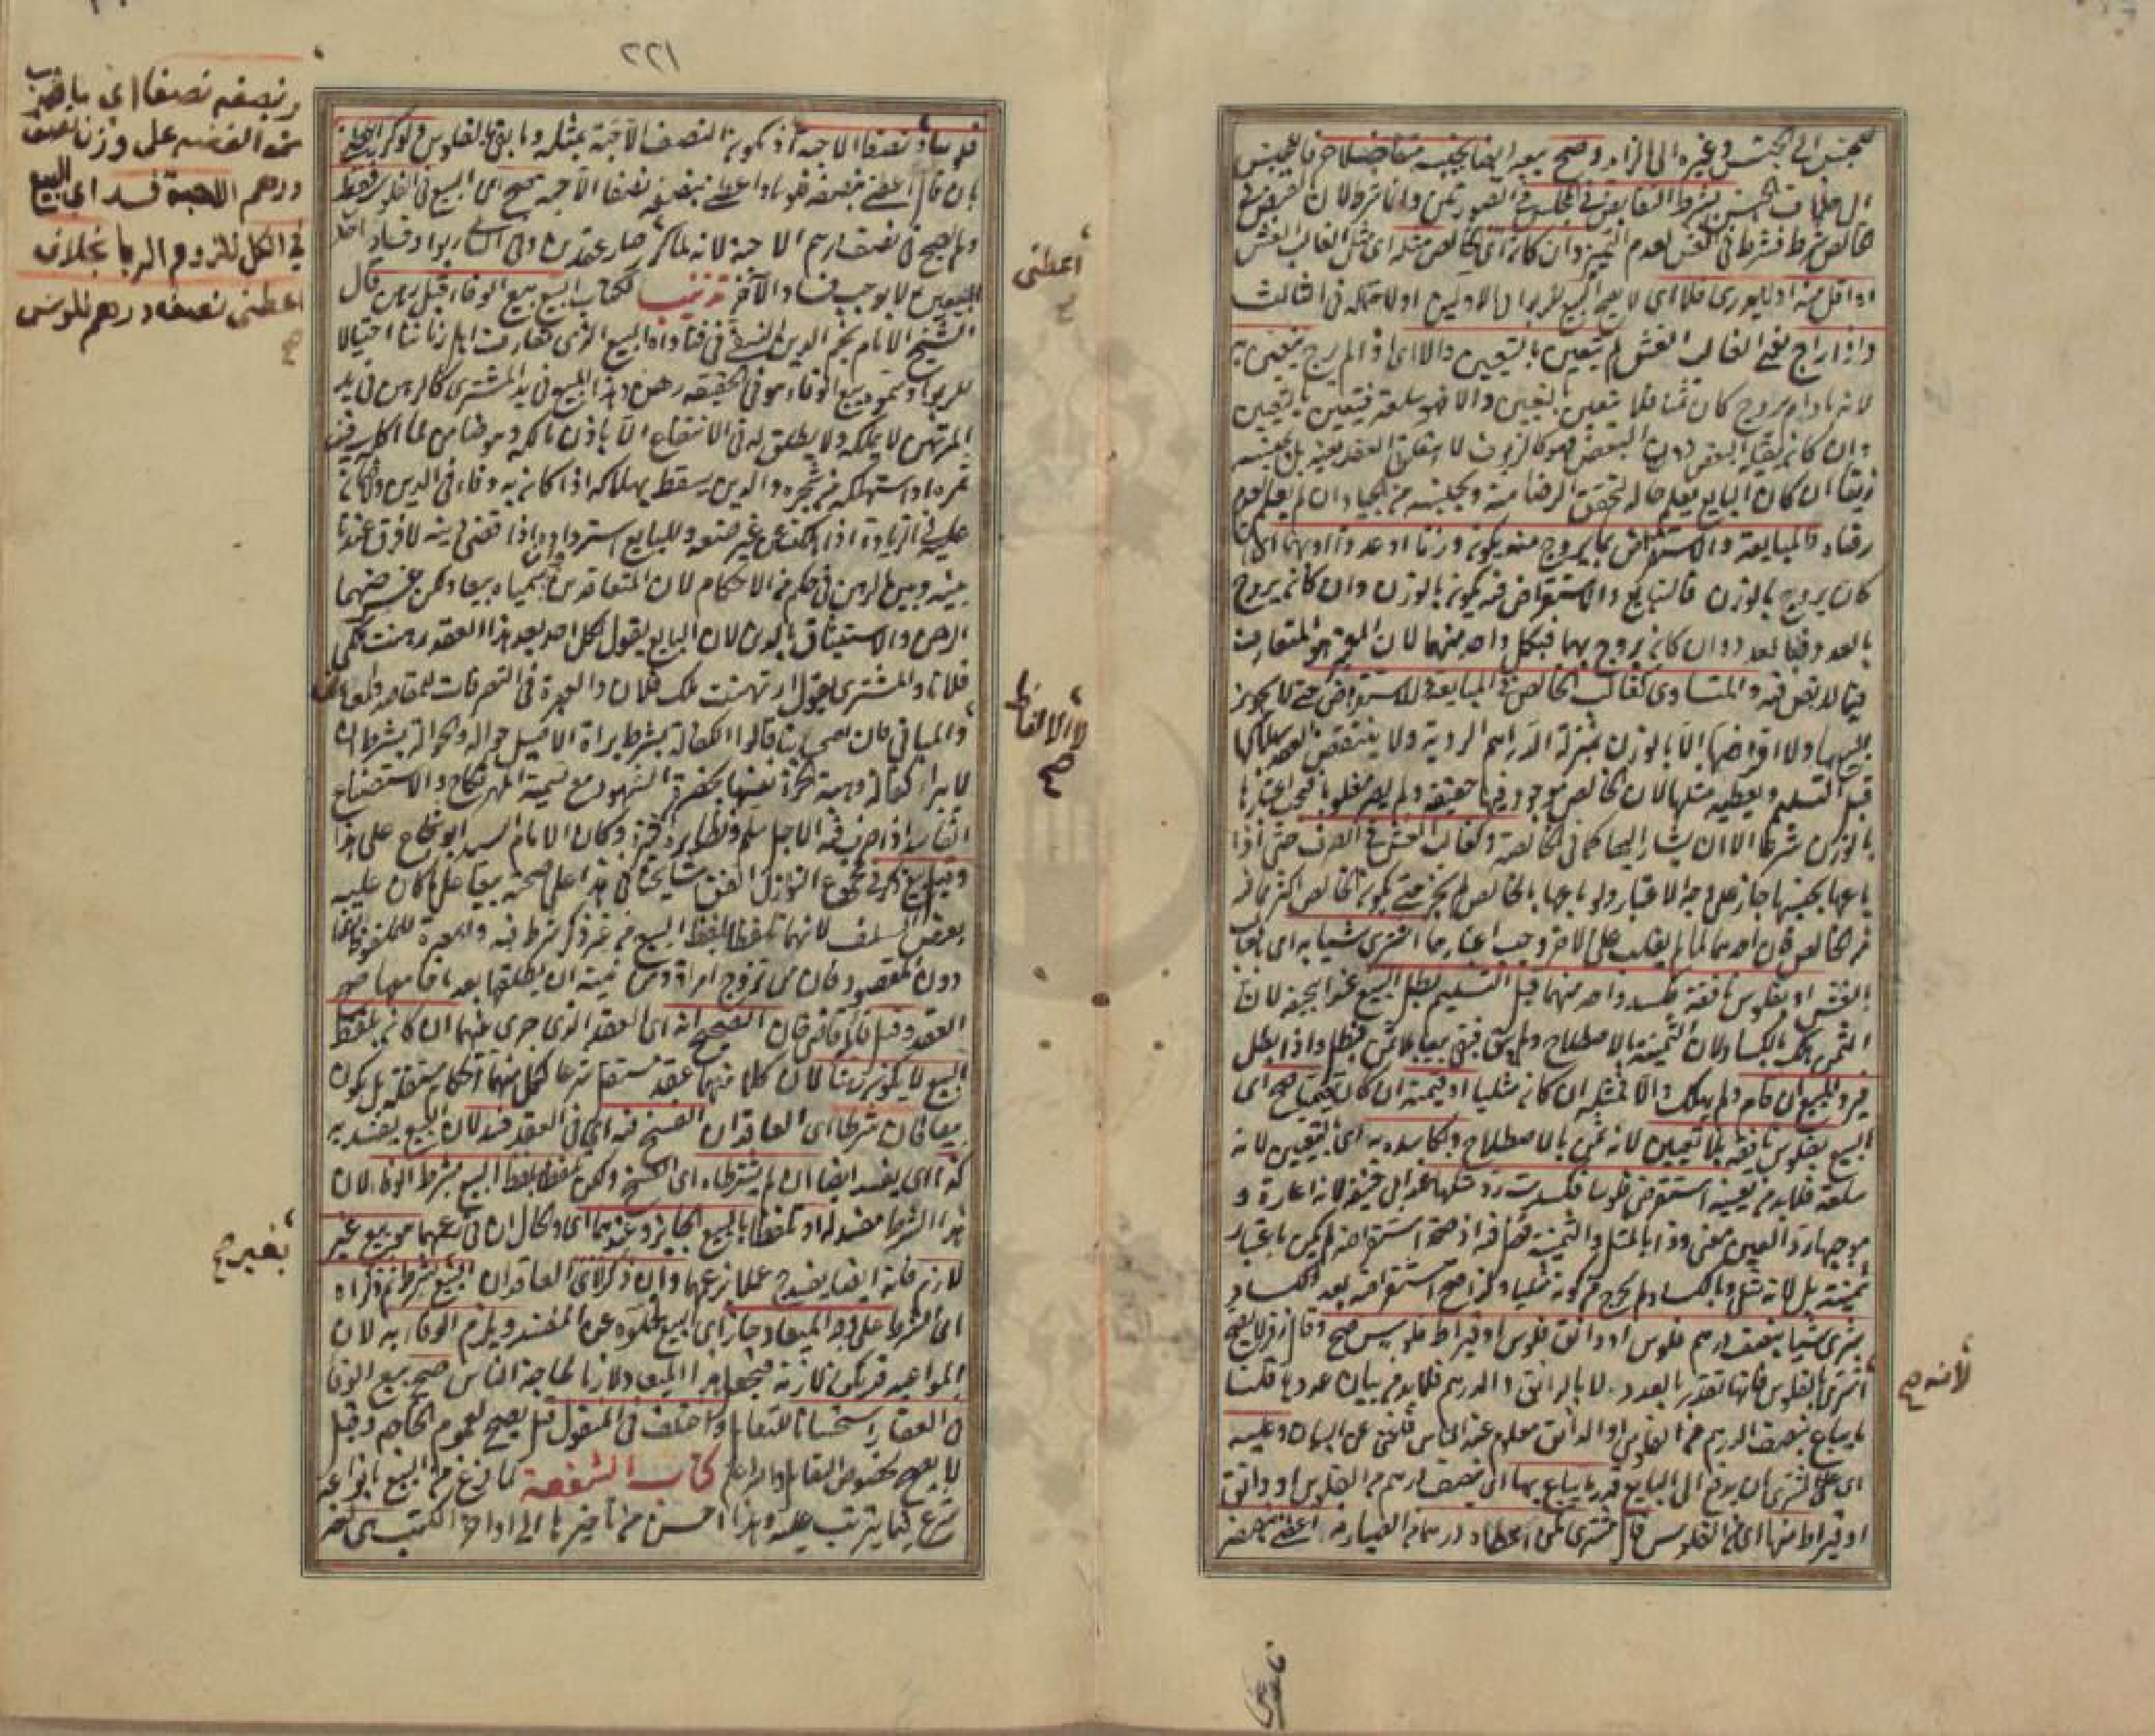 للجنس الى الجنس وغيره الى الزائد وصح بيعه ايضا بجنسه متفاضلا صرفا للجنس
الى خلاف الجنس بشرط التقابض في المجلس في الصور ثمن وانما شرط لان القبض في
الخالص شرط فشرط في الغش لعدم التميز وان كان اي الخالص مثله اي مثل الغالب الغش
او اقل منه او لا يدرى فلا اي لا يصح البيع للربوا في الاولين او لاحتماله في الثالث
واذا راج يعني الغالب الغش لم يتعين بالتعيين والا اي اذا لم يرج يتعين به
لانه مادام يروج كان ثمنا فلا يتعين بالتعيين والا فهو سلعة فيتعين بالتعيين
وان كان يقبله البعض دون البعض فهو كالزيوف لا يتعلق العقد بعينه بل بجنسه
زيفا ان كان البايع يعلم حاله لتحقق الرضا منه وبجنسه من الجياد ان لم يعلم لعدم
رضاه والمبايعة والاستقراض بما يروج منه يكون وزنا او عددا او بهما اي ان
كان يروج بالوزن فالتبايع والاستقراض فيه يكون بالوزن وان كان يروج
بالعدد فبالعدد وان كان يروج بهما فبكل واحد منهما لان المعتبر هو المتعارف
فيما لا نص فيه والمتساوي كغالب الخالص في المبايعة والاستقراض حتى لا يجوز
البيع بها ولا اقراضها الا بالوزن بمنزلة الدراهم الردية ولا ينتقض العقد بهلاكها
قبل التسليم ويعطيه مثلها لان الخالص موجود فيها حقيقة ولم يصر مغلوبا فيجب اعتبارها
بالوزن شرعا الا ان يشار اليها كما في الخالصة وكغالب الغش في الصرف حتى اذا
باعها بجنسها جاز على وجه الاعتبار ولو باعها بالخالص لم يجز حتى يكون الخالص اكثر مما فيه
من الخالص فان احدهما لما لم يغلب على الآخر وجب اعتبارهما اشترى شيئا به اي بغالب
الغش او بفلوس نافقة فكسد واحد منهما قبل التسليم بطل البيع عند ابي حنيفة لان
الثمن يهلك بالكساد لان الثمنية بالاصطلاح ولم يبق فبقي بيعا بلا ثمن فبطل واذا بطل
فيرد المبيع ان قام ولم يهلك والا فمثله ان كان مثليا او قيمته ان كان قيميا صح اي
البيع بفلوس نافقة بلا تعيين لانه ثمن بالاصطلاح وبكاسدة به اي بالتعيين لانه
سلعة فلا بد من تعيينه استقرض فلوسا فكسدت رد مثلها عند ابي حنيفة لانه اعارة و
موجبها رد العين معنى وذا بالمثل والثمنية فضل فيه اذ صحة استقراضه لم يكن باعتبار
ثمنيته بل لانه مثلي وبالكساد لم يخرج من كونه مثليا ولذا صح استقراضه بعد الكساد
شرى شيئا بنصف درهم فلوس او دانق فلوس او قيراط فلوس صح وقال زفر لا يصح
اشترى بالفلوس فانها تقدر بالعدد لا بالدانق والدرهم فلا بد من بيان عددها قلنا
ما يباع بنصف الدرهم من الفلوس او الدانق معلوم عند الناس فاغنى عن البيان وعليه
اي على المشتري ان يدفع الى البايع قدر ما يباع بها اي بنصف درهم من الفلوس او دانق
او قيراط منها اي من الفلوس قال مشتري لمن اعطاه درهما من الصيارفة اعطني بنصفه
لانه صح
٢٢١
فلوسا ونصفا الا حبة اذ يكون النصف الا حبة بمثله وما بقي بالفلوس ولو كرر اللفظ
بان قال اعطني بنصفه فلوسا واعطني بنصفه نصفا الا حبة صح اي البيع في الفلوس فقط
ولم يصح في نصف درهم الا حبة لانه لما كرر صار عقدين وفي الثاني ربوا وفساد احد
البيعين لا يوجب فساد الآخر تذنيب لكتاب البيع بيع الوفاء قيل رهن قال
الشيخ الامام نجم الدين النسفي في فتاواه البيع الذي تعارفه اهل زماننا احتيالا
للربوا وسموه بيع الوفاء هو في الحقيقة رهن وهذا المبيع في يد المشتري كالرهن في يد
المرتهن لا يملكه ولا يطلق له في الانتفاع الا باذن مالكه وهو ضامن لما اكل من
ثمره او استهلكه من شجره والدين يسقط بهلاكه اذا كان به وفاء في الدين ولا ضمان
عليه في الزيادة اذا هلكت عن غير صنعه وللبايع استرداده اذا قضى دينه لا فرق عندنا
بينه وبين الرهن في حكم من الاحكام لان المتعاقدين سمياه بيعا ولكن غرضهما
الرهن والاستيثاق بالدين لان البايع يقول لكل احد بعد هذا العقد رهنت ملكي
فلانا والمشتري يقول ارتهنت ملك فلان والعبرة في التصرفات للمقاصد والمعاني
والمباني فان اصحابنا قالوا الكفالة بشرط براءة الاصيل حوالة والحوالة بشرط ان
لا يبرأ كفالة وهبة الحرة نفسها بحضرة الشهود مع تسمية المهر نكاح والاستصناع
الفاسد اذا ضرب فيه الاجل سلم ونظايره كثيرة وكان الامام السيد ابو شجاع على هذا
وقيل بيع ذكر في مجموع النوازل اتفق مشايخنا في هذا على صحته بيعا على ما كان عليه
بعض السلف لانهما تلفظا بلفظ البيع من غير ذكر شرط فيه والعبرة للملفوظ نصا
دون المقصود فان من تزوج امرأة ومن نيته ان يطلقها بعد ما جامعها صح
العقد وقيل قال قاضي خان الصحيح انه اي العقد الذي جرى بينهما ان كان بلفظ
البيع لا يكون رهنا لان كلا منهما عقد مستقل شرعا لكل منهما احكام مستقلة بل يكون
بيعا فان شرطا اي العاقدان الفسخ فيه اي في العقد فسد لان البيع يفسد به
كذا اي يفسد ايضا ان لم يشترطاه اي الفسخ ولكن تلفظا بلفظ البيع بشرط الوفاء لان
هذا الشرط مفسد له او تلفظا بالبيع الجايز وعندهما اي والحال ان في زعمهما هو بيع غير
لازم فانه ايضا يفسد عملا بزعمهما وان ذكرا اي العاقدان البيع بلا شرط ثم ذكراه
اي الشرط على وجه الميعاد جاز اي البيع لخلوه عن المفسد ويلزم الوفاء به لان
المواعيد قد تكون لازمة فيجعل هذا الميعاد لازما لحاجة الناس صح بيع الوفاء
في العقار استحسانا للتعامل واختلف في المنقول قيل يصح لعموم الحاجة وقيل
لا يصح لخصوص التعامل والله اعلم كتاب الشفعة لما فرغ من البيع بانواعه
شرع فيما يترتب عليه وهذا احسن من تأخيرها الى اواخر الكتب كما
اعطني
لا الالفاظ
صح
وبنصفه نصفا اي ما ضرب
من الفضة على وزن نصف
درهم الا حبة فسد اي البيع
في الكل للزوم الربا بخلاف
اعطني نصف درهم فلوس
صح
بغير صح